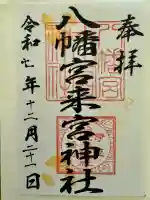 奉拝
八幡宮来宮神社
令和七年十二月二十一日